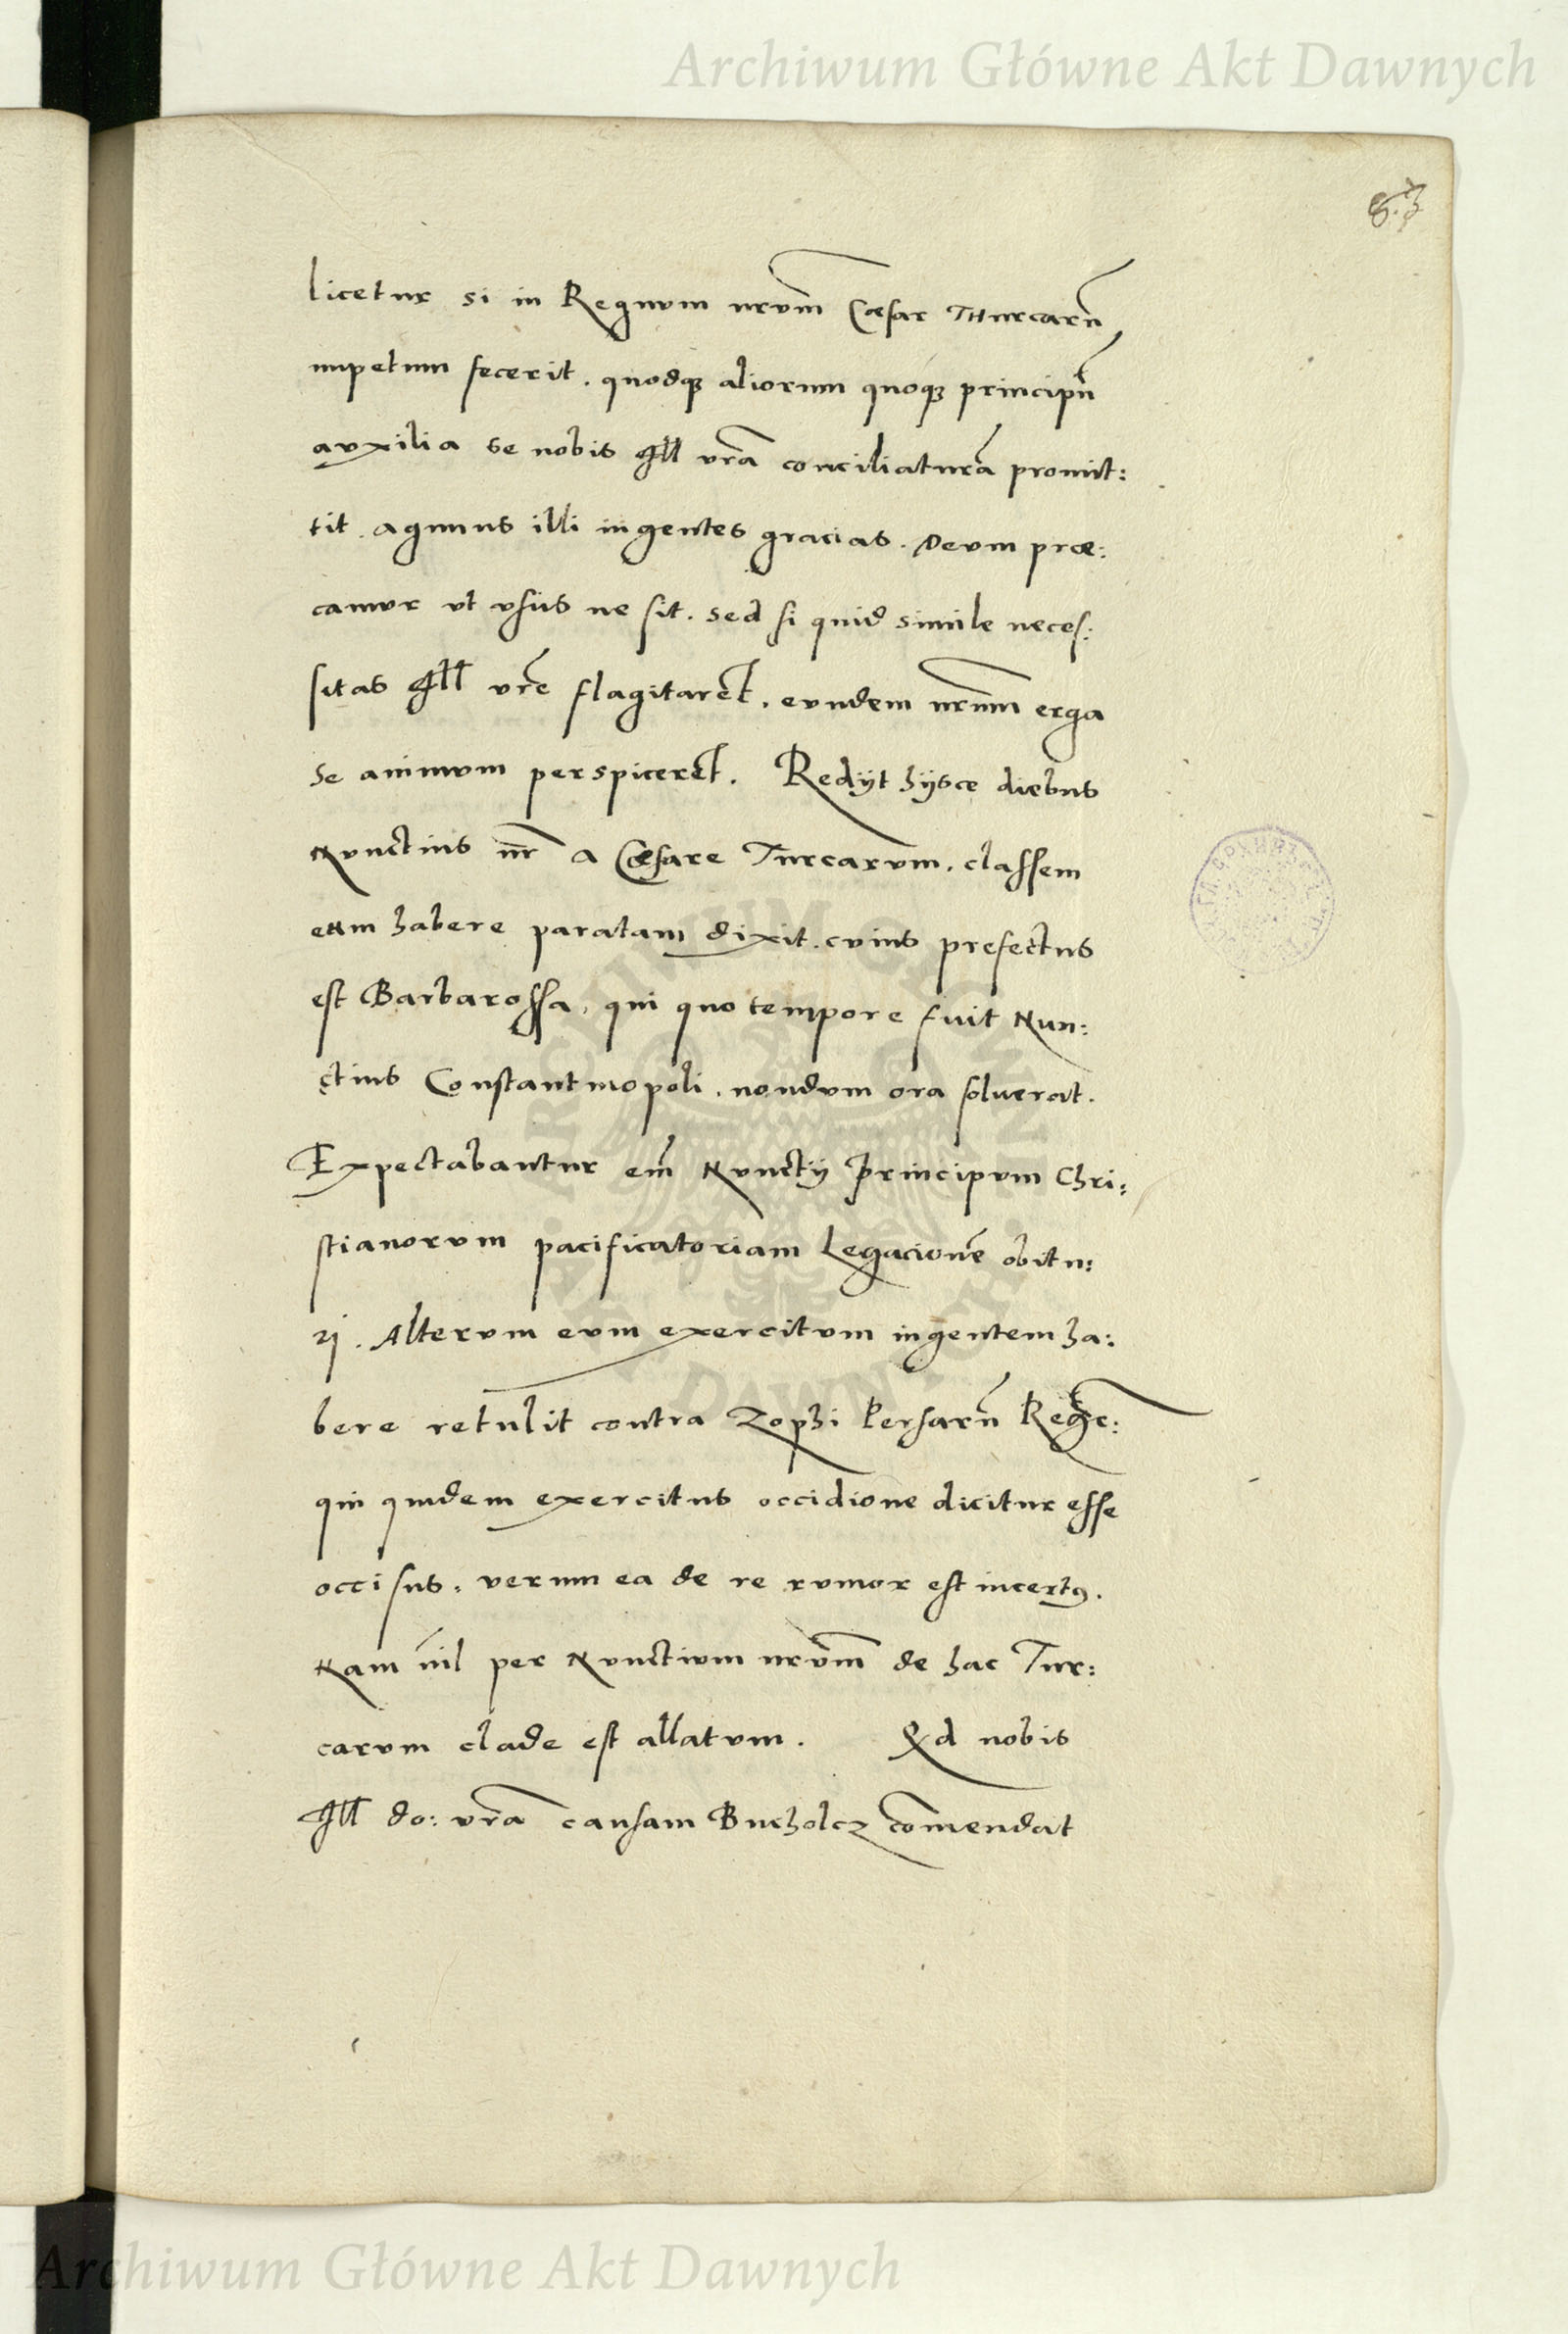 Archiwum Główne Akt Dawnych
63
licetur si in Regnum nrūm Cæsar THurcarū
impetum fecerit. quodqꝫ aliorum quoqꝫ principū
auxilia se nobis Ill vrā conciliaturā promit:
tit. agimus illi ingentes gracias. Deum præ:
camur ut usus ne sit. sed si quid simile neces:
sitas Ill vrē flagitaret. eundem nrūm erga
se animum perspiceret. Redijt hijsce diebus
Nunctius nr̄ a Cæsare Turcarum. classem
eum habere paratam dixit. cuius prefectus
est Barbarossa, qui quo tempore fuit Nun:
ctius Constantinopoli. nondum ora soluerat.
Expectabantur em̄ Nunctij Principum Chri:
stianorum pacificatoriam Legacionē obitu:
rj. Alterum eum exercitum ingentem ha:
bere retulit contra Zophi Persarū Regē:
qui quidem exercitus occidione dicitur esse
occisus. verum ea de re rumor est incertꝰ.
Nam nīl per Nunctium nrūm de hac Tur:
carum clade est allatum. Qd nobis
Ill do: vrā causam Bucholcz com̄endat
Archiwum Główne Akt Dawnych